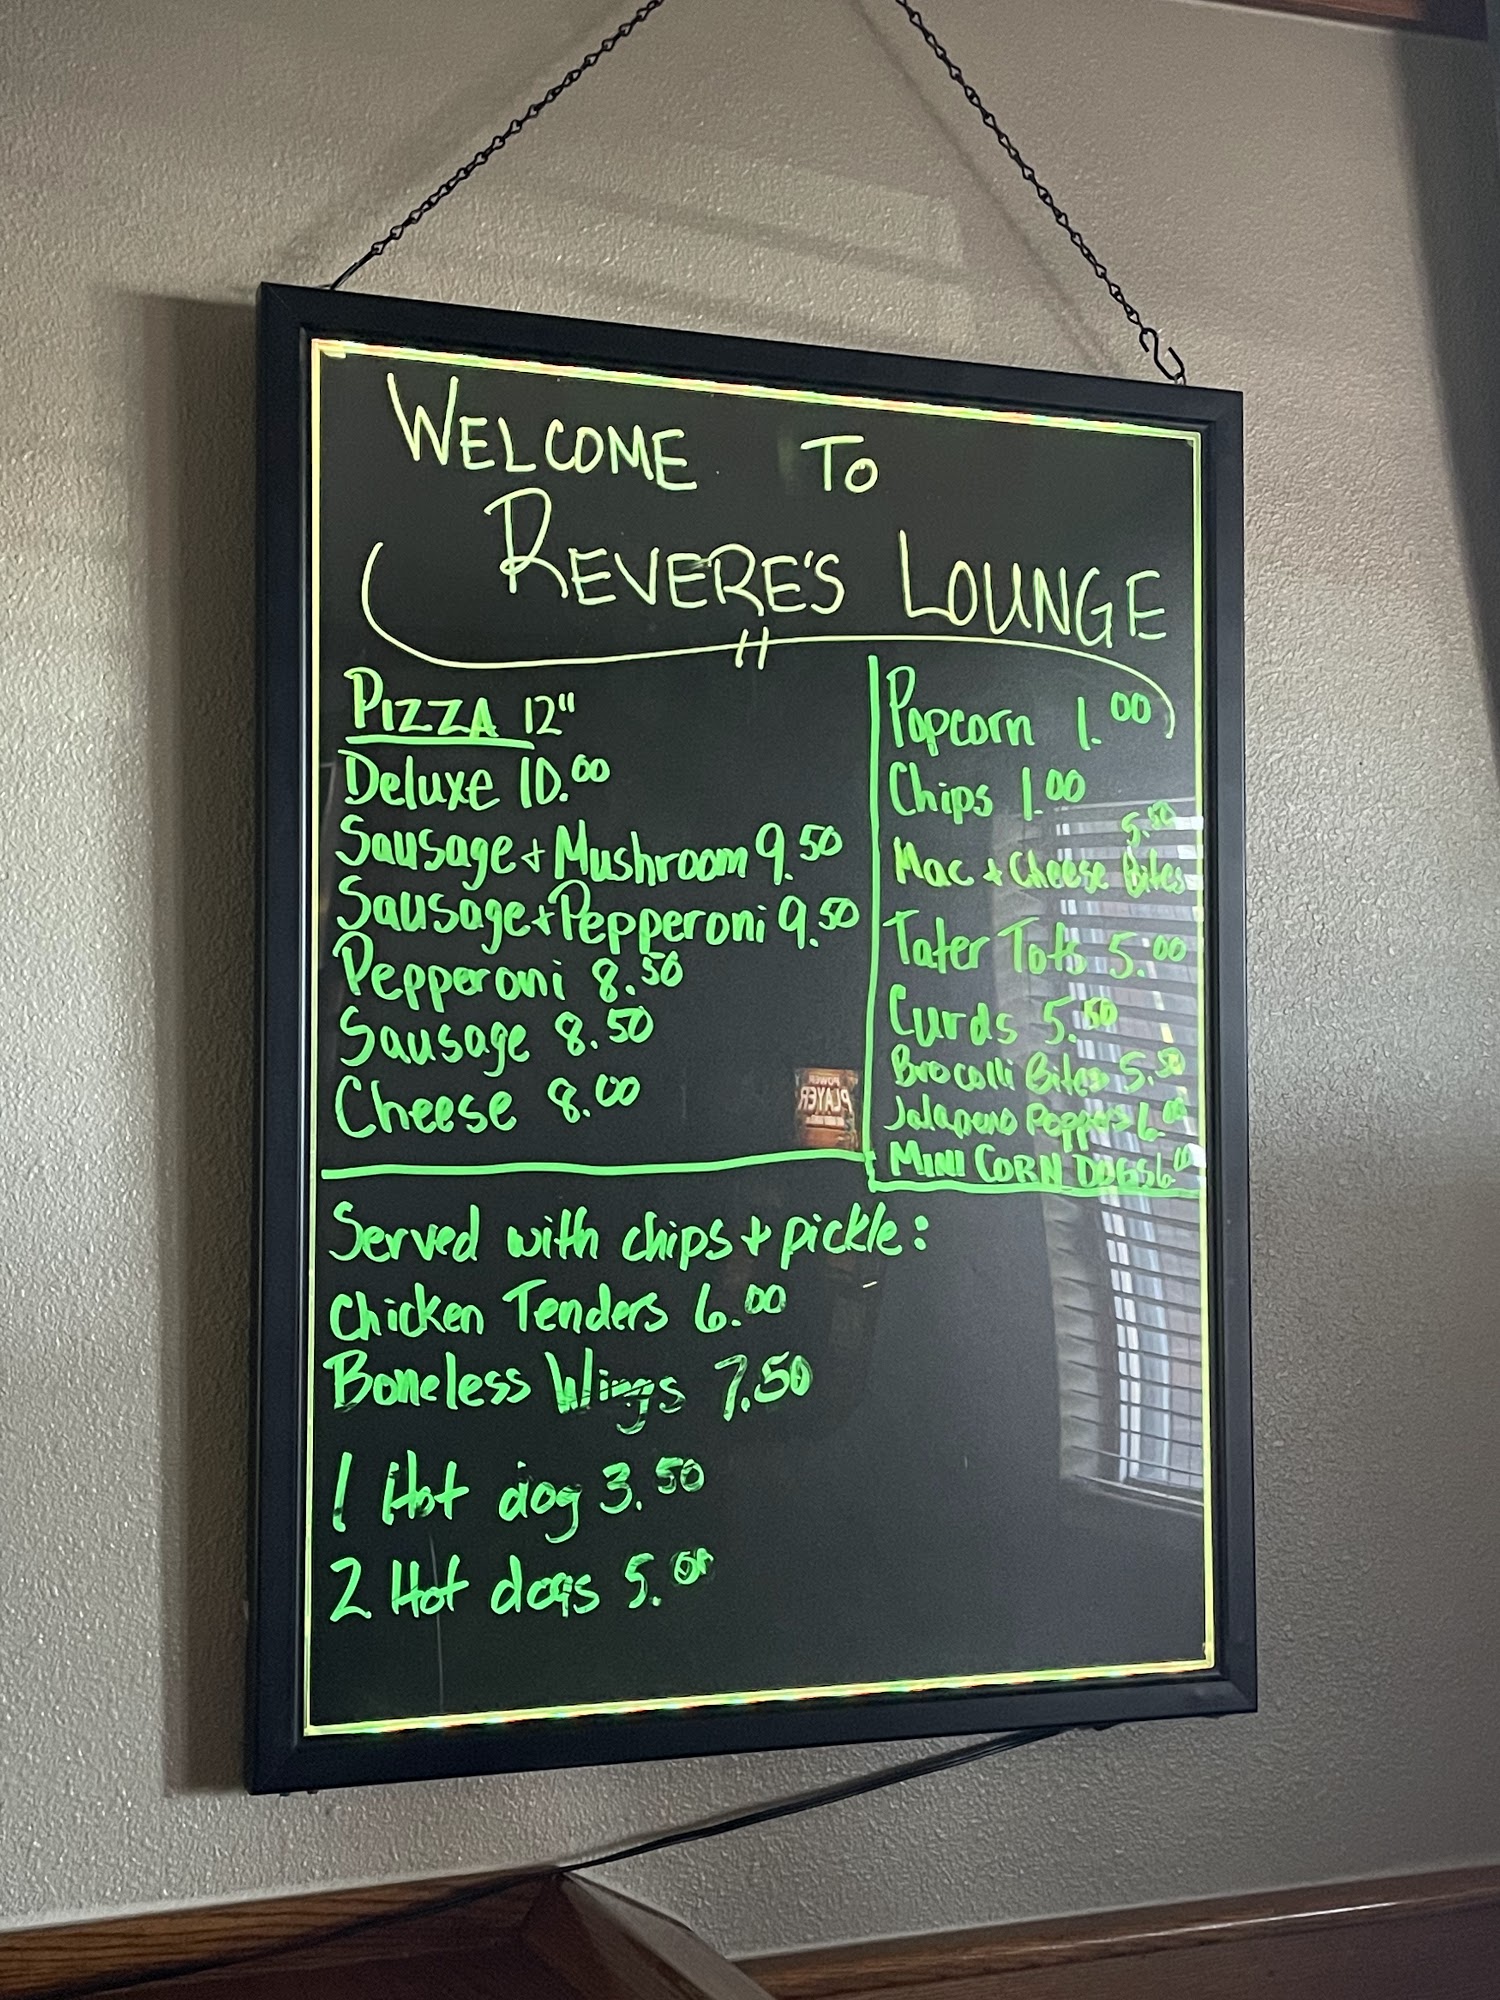 WELCOME TO
REVERE'S LOUNGE
PIZZA 12"
Deluxe 10.00
Sausage + Mushroom 9.50
Sausage + Pepperoni 9.50
Pepperoni 8.50
Sausage 8.50
Cheese 8.00
Popcorn 1.00
Chips 1.00
5.50
Mac + Cheese Bites
Tater Tots 5.00
Curds 5.50
Brocolli Bites 5.50
Jalapeno Poppers 6.00
MINI CORN DOGS 6.00
POWER
PLAYER
Served with chips + pickle:
Chicken Tenders 6.00
Boneless Wings 7.50
1 Hot dog 3.50
2 Hot dogs 5.00